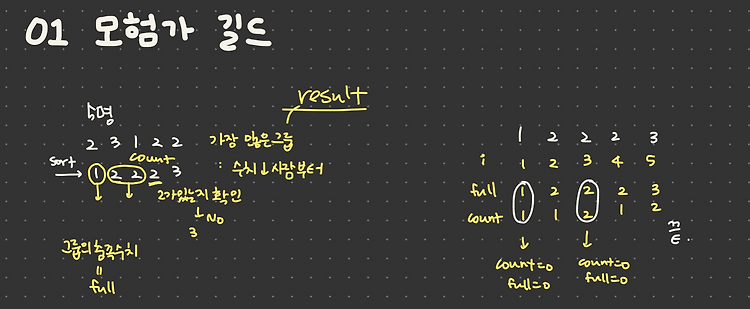 01 모험가 길드
5명
2 3 1 2 2
sort → 1 2 2 2 3
count
2가 있는지 확인
↓ NO
3
그룹의 충족수치
=
full
result
가장 많은 그룹
: 수치↓ 사람부터
1 2 2 2 3
i 1 2 3 4 5
full 1 2 2 2 3
count 1 1 2 1 2
count=0
full=0
count=0
full=0